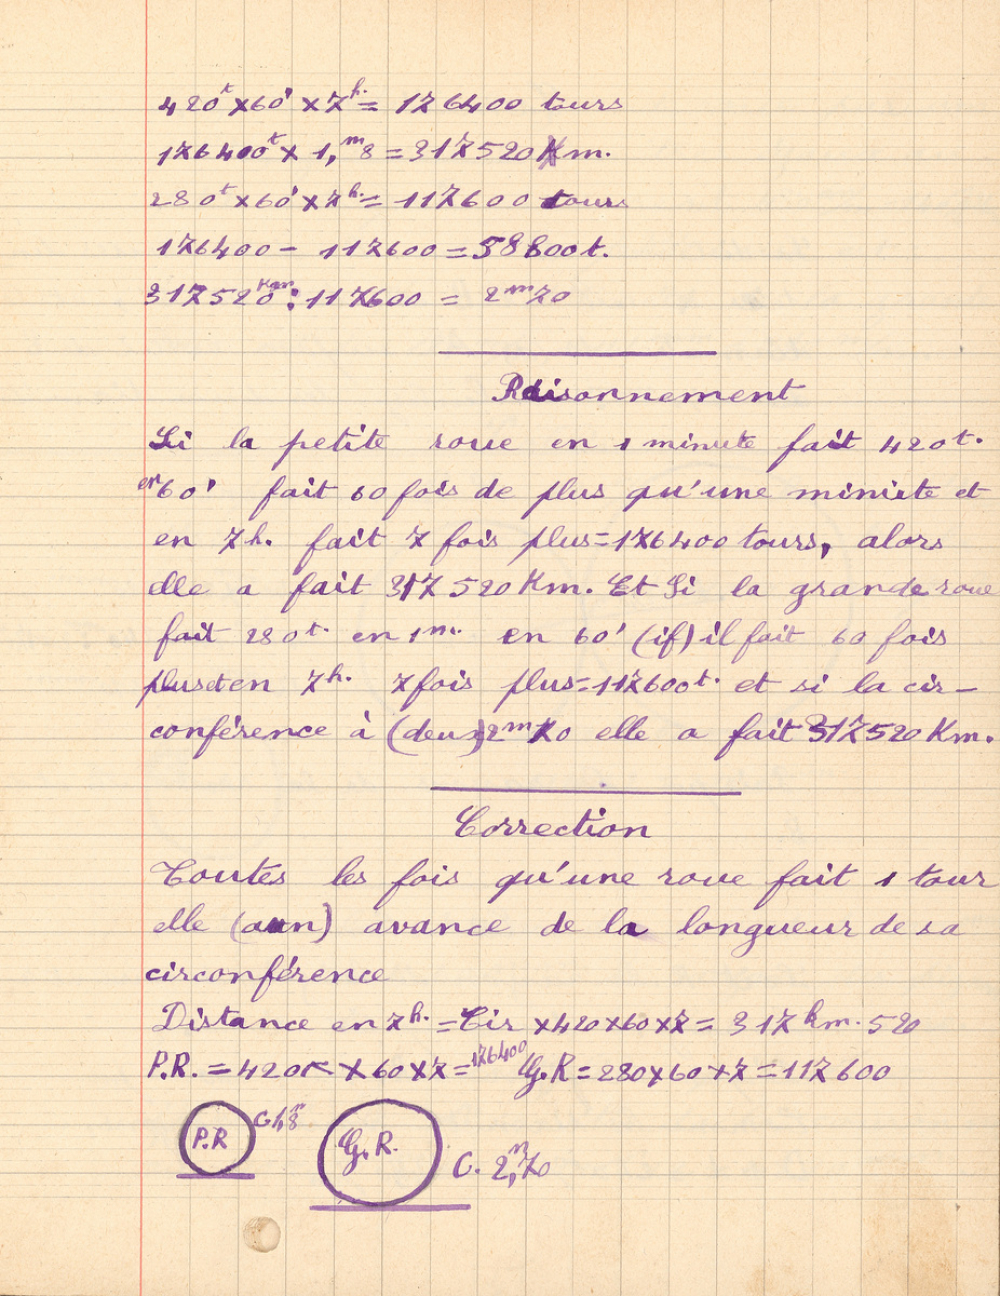 420ᵗ×60'×7ʰ·= 176400 tours
176400ᵗ× 1,ᵐ8 = 317520 Km.
280ᵗ×60'×7ʰ·= 117600 tours
176400 - 117600 = 58800t.
317520ᴷᵐ : 117600 = 2ᵐ70
Raisonnement
Si la petite roue en 1 minute fait 420t.
en 60' fait 60 fois de plus qu'une miniute et
en 7h. fait 7 fois plus=176400 tours, alors
elle a fait 317520 Km. Et Si la grande roue
fait 280t. en 1m. en 60' (if) il fait 60 fois
plus et en 7h. 7 fois plus=117600t. et si la cir-
conférence à (deux) 2ᵐ70 elle a fait 317520 Km.
Correction
Toutes les fois qu'une roue fait 1 tour
elle (aun) avance de la longueur de sa
circonférence
Distance en 7h. = Cir ×420×60×7= 317km.520
P.R. = 420 × 60×7=176400 G.R=280×60×7=117600
P.R C 1,ᵐ8 G.R. C. 2,ᵐ70